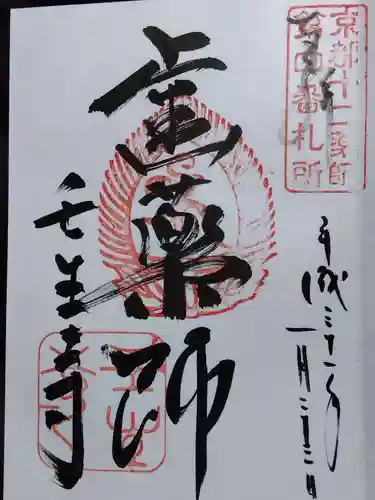 京都十二薬師
第四番札所
奉拝
平成三十一年
一月二十三日
歯薬師
壬生寺